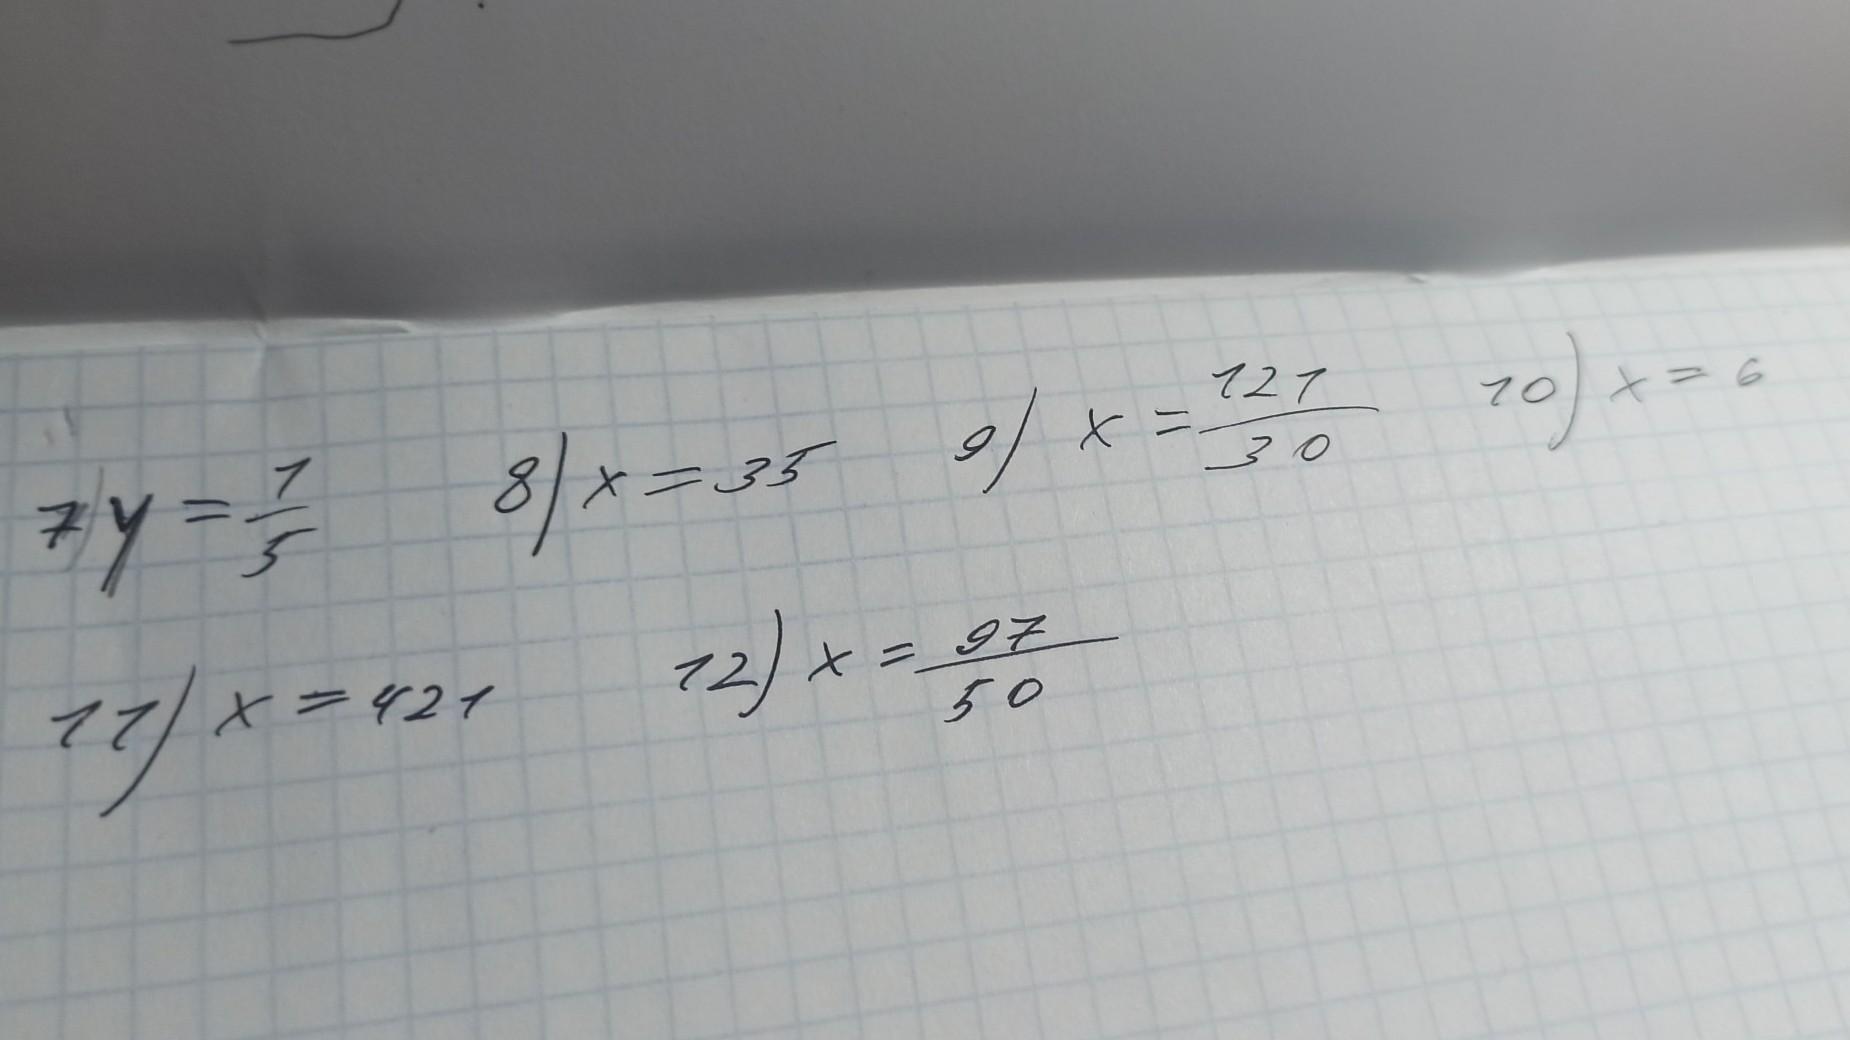 7) y = 1/5 8) x = 35 9) x = 121/30 10) x = 6
11) x = 421 12) x = 97/50